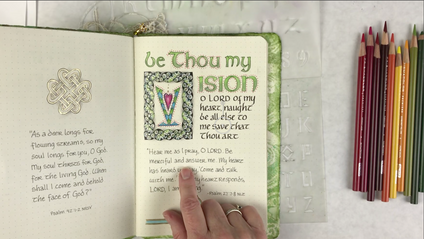 "As a deer longs for
flowing streams, so my
soul longs for you, O God.
My soul thirsts for God,
for the living God. When
shall I come and behold
the face of God?"
Psalm 42:1-2
be Thou my
VISION
O LORD of my
heart, naught
be all else to
me save that
Thou art
"Hear me as I pray, O LORD. Be
merciful and answer me. My heart
has heard you say, "Come and talk
with me." my heart responds,
LORD, I am
Psalm 27:7-8